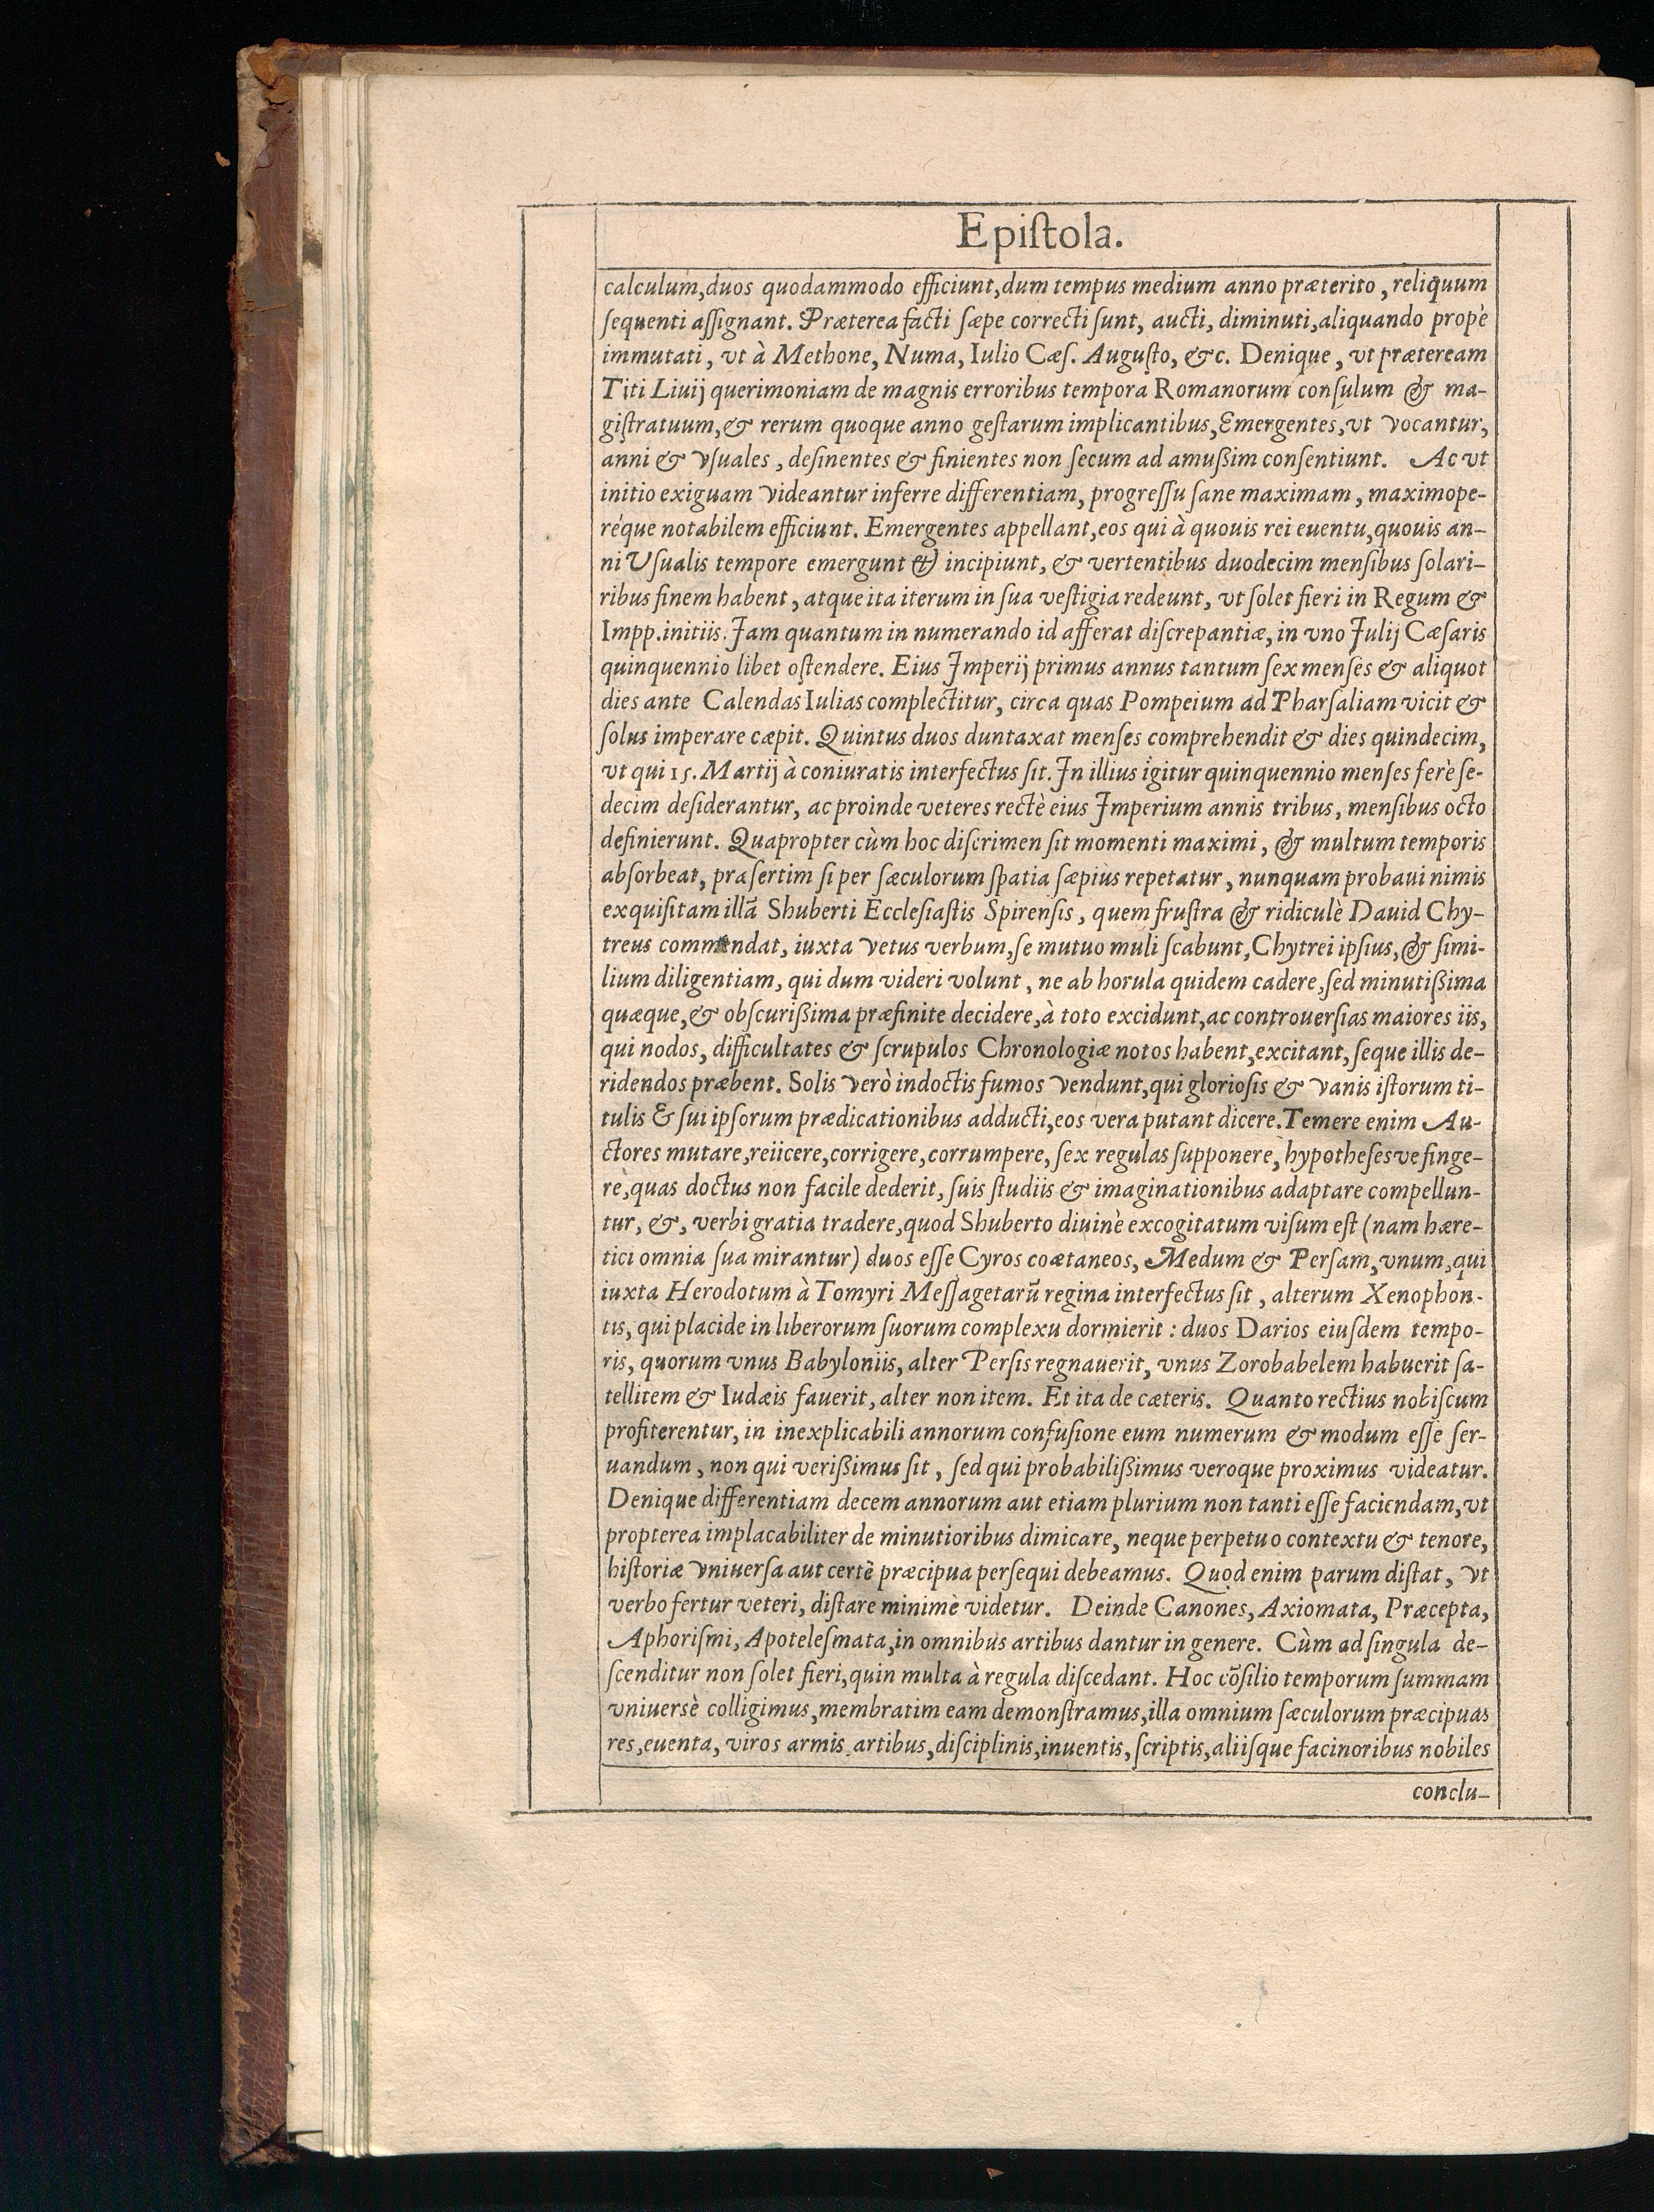 Epiſtola.
calculum, duos quodammodo efficiunt, dum tempus medium anno præterito, reliquum
ſequenti aſſignant. Præterea facti ſæpe correcti ſunt, aucti, diminuti, aliquando propè
immutati, vt à Methone, Numa, Iulio Cæſ. Auguſto, &c. Denique, vt præteream
Titi Liuij querimoniam de magnis erroribus tempora Romanorum conſulum & ma-
giſtratuum, & rerum quoque anno geſtarum implicantibus, Emergentes, vt vocantur,
anni & vſuales, deſinentes & finientes non ſecum ad amußim conſentiunt. Ac vt
initio exiguam videantur inferre differentiam, progreſſu ſane maximam, maximope-
réque notabilem efficiunt. Emergentes appellant, eos qui à quouis rei euentu, quouis an-
ni Vſualis tempore emergunt & incipiunt, & vertentibus duodecim menſibus ſolari-
ribus finem habent, atque ita iterum in ſua veſtigia redeunt, vt ſolet fieri in Regum &
Impp. initiis. Jam quantum in numerando id afferat diſcrepantiæ, in vno Julij Cæſaris
quinquennio libet oſtendere. Eius Jmperij primus annus tantum ſex menſes & aliquot
dies ante Calendas Iulias complectitur, circa quas Pompeium ad Pharſaliam vicit &
ſolus imperare cæpit. Quintus duos duntaxat menſes comprehendit & dies quindecim,
vt qui 15. Martij à coniuratis interfectus ſit. Jn illius igitur quinquennio menſes ferè ſe-
decim deſiderantur, ac proinde veteres rectè eius Jmperium annis tribus, menſibus octo
definierunt. Quapropter cùm hoc diſcrimen ſit momenti maximi, & multum temporis
abſorbeat, praſertim ſi per ſæculorum ſpatia ſæpius repetatur, nunquam probaui nimis
exquiſitam illã Shuberti Eccleſiaſtis Spirenſis, quem fruſtra & ridiculè Dauid Chy-
treus commendat, iuxta vetus verbum, ſe mutuo muli ſcabunt, Chytrei ipſius, & ſimi-
lium diligentiam, qui dum videri volunt, ne ab horula quidem cadere, ſed minutißima
quæque, & obſcurißima præfinite decidere, à toto excidunt, ac controuerſias maiores iis,
qui nodos, difficultates & ſcrupulos Chronologiæ notos habent, excitant, ſeque illis de-
ridendos præbent. Solis verò indoctis fumos vendunt, qui glorioſis & vanis iſtorum ti-
tulis & ſui ipſorum prædicationibus adducti, eos vera putant dicere. Temere enim Au-
ctores mutare, reiicere, corrigere, corrumpere, ſex regulas ſupponere, hypotheſesve finge-
rè, quas doctus non facile dederit, ſuis ſtudiis & imaginationibus adaptare compellun-
tur, &, verbi gratia tradere, quod Shuberto diuinè excogitatum viſum eſt (nam hære-
tici omnia ſua mirantur) duos eſſe Cyros coætaneos, Medum & Perſam, vnum, qui
iuxta Herodotum à Tomyri Meſſagetarũ regina interfectus ſit, alterum Xenophon-
tis, qui placide in liberorum ſuorum complexu dormierit : duos Darios eiuſdem tempo-
ris, quorum vnus Babyloniis, alter Perſis regnauerit, vnus Zorobabelem habuerit ſa-
tellitem & Iudæis fauerit, alter non item. Et ita de cæteris. Quanto rectius nobiſcum
profiterentur, in inexplicabili annorum confuſione eum numerum & modum eſſe ſer-
uandum, non qui verißimus ſit, ſed qui probabilißimus veroque proximus videatur.
Denique differentiam decem annorum aut etiam plurium non tanti eſſe faciendam, vt
propterea implacabiliter de minutioribus dimicare, neque perpetuo contextu & tenore,
hiſtoriæ vniuerſa aut certè præcipua perſequi debeamus. Quod enim parum diſtat, vt
verbo fertur veteri, diſtare minimè videtur. Deinde Canones, Axiomata, Præcepta,
Aphoriſmi, Apoteleſmata, in omnibus artibus dantur in genere. Cùm ad ſingula de-
ſcenditur non ſolet fieri, quin multa à regula diſcedant. Hoc cõſilio temporum ſummam
vniuersè colligimus, membratim eam demonſtramus, illa omnium ſæculorum præcipuas
res, euenta, viros armis, artibus, diſciplinis, inuentis, ſcriptis, aliiſque facinoribus nobiles
conclu-